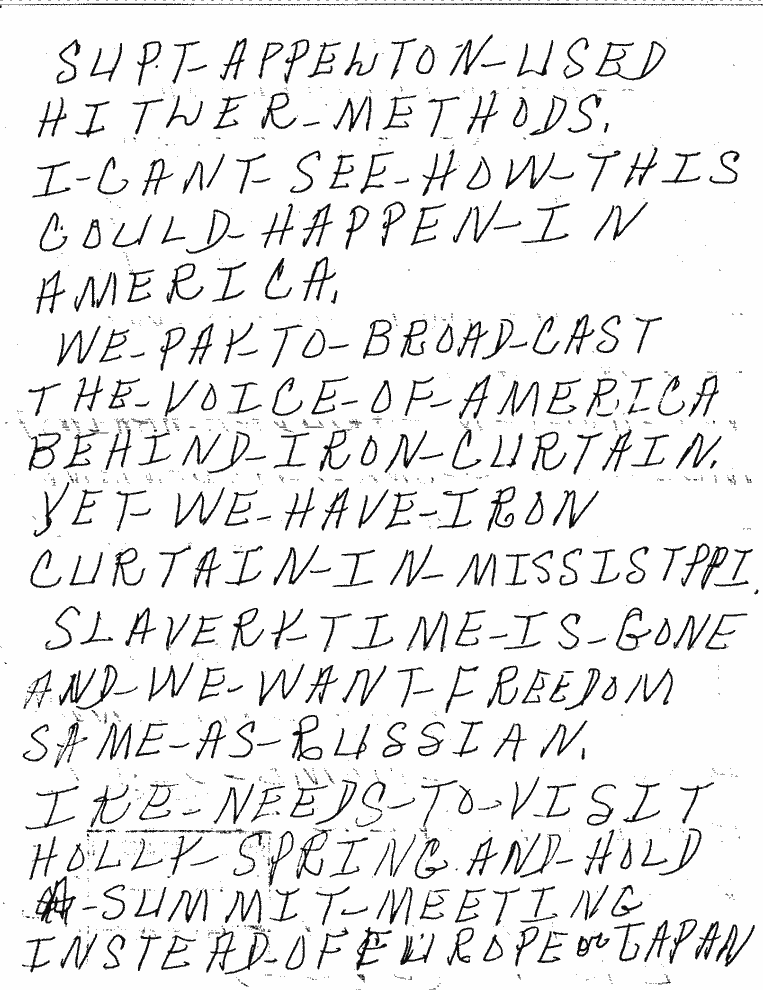 SUPT-APPEWTON-USED
HITWER-METHODS.
I-CANT-SEE-HOW-THIS
COULD-HAPPEN-IN
AMERICA.
WE-PAY-TO-BROAD-CAST
THE-VOICE-OF-AMERICA
BEHIND-IRON-CURTAIN.
YET-WE-HAVE-IRON
CURTAIN-IN-MISSISTPPI.
SLAVERY-TIME-IS-GONE
AND-WE-WANT-FREEDOM
SAME-AS-RUSSIAN.
IKE-NEEDS-TO-VISIT
HOLLY-SPRING AND-HOLD
A-SUMMIT-MEETING
INSTEAD-OF EUROPE or JAPAN